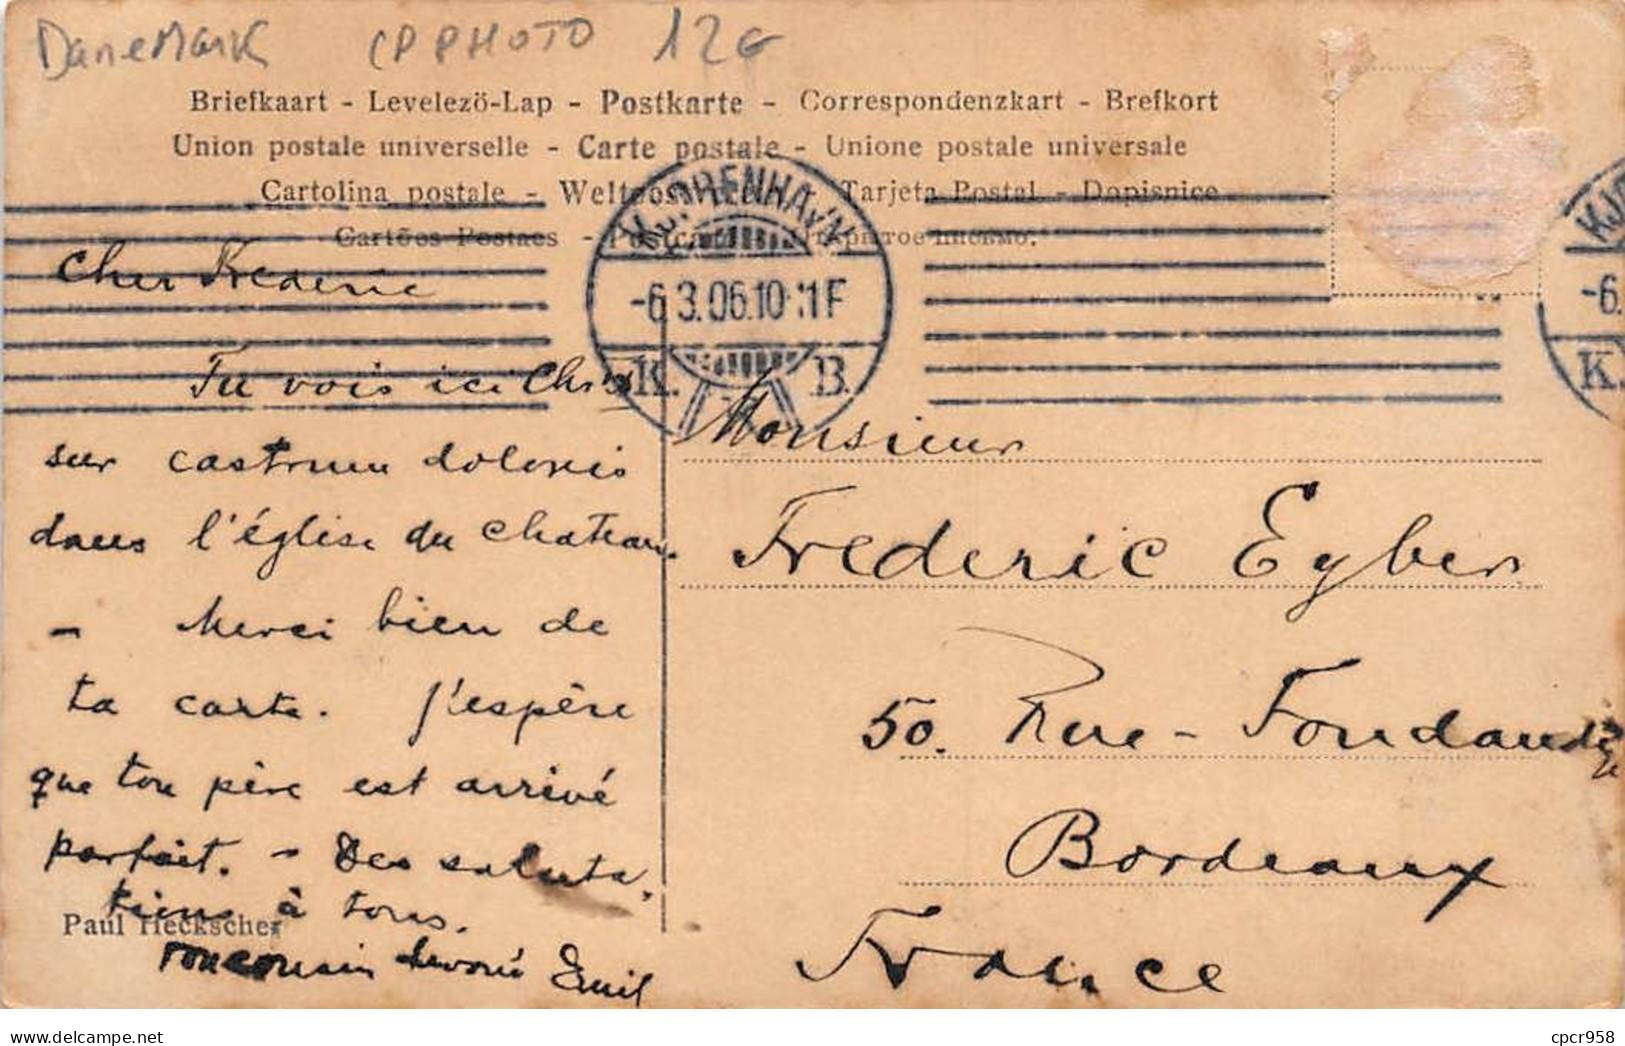 DaneMark CP PHOTO 12€
Briefkaart - Levelezö-Lap - Postkarte - Correspondenzkart - Brefkort
Union postale universelle - Carte postale - Unione postale universale
Cartolina postale - Weltpostverein - Tarjeta Postal - Dopisnice
Cartões Postaes - Postcard
KJØBENHAVN
-6.3.06.10-11F
K. B.
KJØ
-6.
K.
Cher Frederic
Tu vois ici Chr. IX
sur castrum doloris
dans l'église du chateau.
- Merci bien de
ta carte. J'espère
que ton père est arrivé
parfait. - Des saluta-
tions à tous.
Paul Heckscher
Ton cousin dévoué Emil
Monsieur
Frederic Eyber
50. Rue - Fondaudège
Bordeaux
France
cpcr958